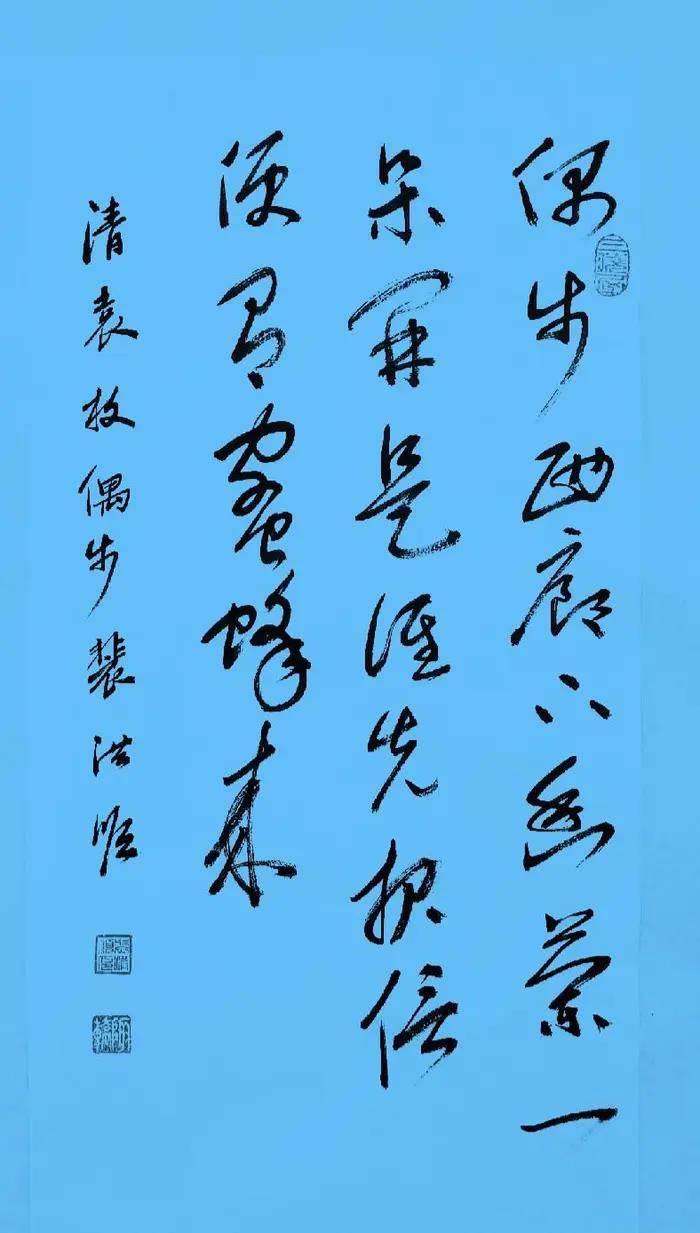 偶步西廊下幽蘭一
朵開是谁先报信
便有蜜蜂来
清袁枚偶步裴洪顺